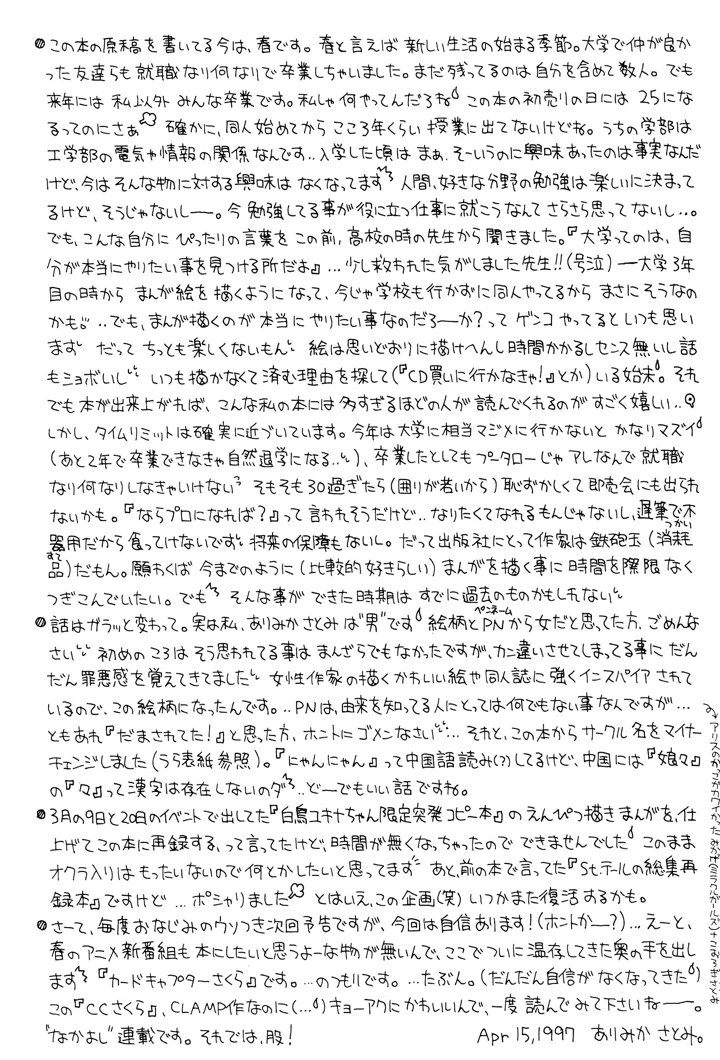 この本の原稿を書いてる今は、春です。春と言えば 新しい生活の始まる季節。大学で仲が良か
った友達らも 就職なり何なりで卒業しちゃいました。まだ残ってるのは自分を含めて数人。でも
来年には 私以外 みんな卒業です。私しゃ何やってんだろね この本の初売りの日には 25にな
るってのにさぁ 確かに、同人始めてから ここ3年くらい 授業に出てないけどね。うちの学部は
工学部の電気や情報の関係なんです‥入学した頃は まぁ、そーいうのに興味あったのは事実なんだ
けど、今はそんな物に対する興味は なくなってます 人間、好きな分野の勉強は楽しいに決まって
るけど、そうじゃないしー。今 勉強してる事が役に立つ仕事に就こうなんて さらさら思ってないし‥。
でも、こんな自分に ぴったりの言葉を この前、高校の時の先生から聞きました。『大学ってのは、自
分が本当にやりたい事を見つける所だよ』…少し救われた気がしました先生!!(号泣) ―大学3年
目の時から まんが絵を 描くようになって、今じゃ学校も行かずに同人やってるから まさにそうなの
かも。‥でも、まんが描くのが本当に やりたい事なのだろーか?って ゲンコ やってると いつも思い
ます だって ちっとも楽しくないもん 絵は思いどおりに描けへんし時間かかるしセンス無いし話
もショボいし いつも描かなくて済む理由を探して(『CD買いに行かなきゃ!』とか)いる始末。それ
でも本が出来上がれば、こんな私の本には 多すぎるほどの人が 読んでくれるのが すごく嬉しい‥
しかし、タイムリミットは確実に近づいています。今年は大学に相当マジメに行かないと かなりマズイ
(あと2年で卒業できなきゃ自然退学になる‥)、卒業したとしてもプータローじゃ アレなんで 就職
なり何なりしなきゃいけない そもそも30過ぎたら(周りが若いから)恥ずかしくて即売会にも出られ
ないかも。『ならプロになれば?』って 言われそうだけど‥なりたくてなれるもんじゃないし、遅筆で不
器用だから食ってけないです 将来の保障もないし。だって出版社にとって作家は鉄砲玉(消耗
つかいすて
品)だもん。願わくば 今までのように(比較的好きらしい)まんがを描く事に 時間を際限なく
つぎこんでいたい。でも そんな事が できた時期は すでに過去のものかもしれない
話はガラッと変わって。実は私、ありみか さとみ は"男"です 絵柄とPNから女だと思ってた方、ごめんな
ペンネーム
さい 初めのころは そう思われてる事は まんざらでもなかったですが、カン違いさせてしまってる事に だん
だん罪悪感を覚えてきてました 女性作家の描くかわいい絵や同人誌に 強くインスパイア されて
いるので、この絵柄になったんです。‥PNは、由来を知ってる人にとっては何でもない事なんですが…
ともあれ『だまされてた!』と思った方、ホントにゴメンなさい… それと、この本からサークル名をマイナー
チェンジしました(うら表紙参照)。『にゃんにゃん』って中国語読み(?)してるけど、中国には『娘々』
の『々』って漢字は存在しないのダ ‥どーでもいい話ですね。
3月の9日と20日のイベントで出してた『白鳥ユキナちゃん限定突発コピー本』の えんぴつ描きまんがを、仕
上げてこの本に再録する、って言ってたけど、時間が無くなっちゃったので できませんでした このまま
オクラ入りは もったいないので何とかしたいと思ってます あと、前の本で言ってた『St.テールの総集再
録本』ですけど …ポシャりました とはいえ、この企画(笑) いつかまた復活するかも。
さーて、毎度おなじみのウソつき次回予告ですが、今回は自信あります!(ホントかー?)…えーと、
春のアニメ新番組も本にしたいと思うよーな物が無いんで、ここでついに温存してきた奥の手を出し
ます 『カードキャプターさくら』です。…のつもりです。…たぶん。(だんだん自信がなくなってきた)
この『CCさくら』、CLAMP作なのに(…)キョーアクにかわいいんで、一度 読んで みて下さいねー。
"なかよし"連載です。それでは、股!
Apr 15,1997 ありみか さとみ。